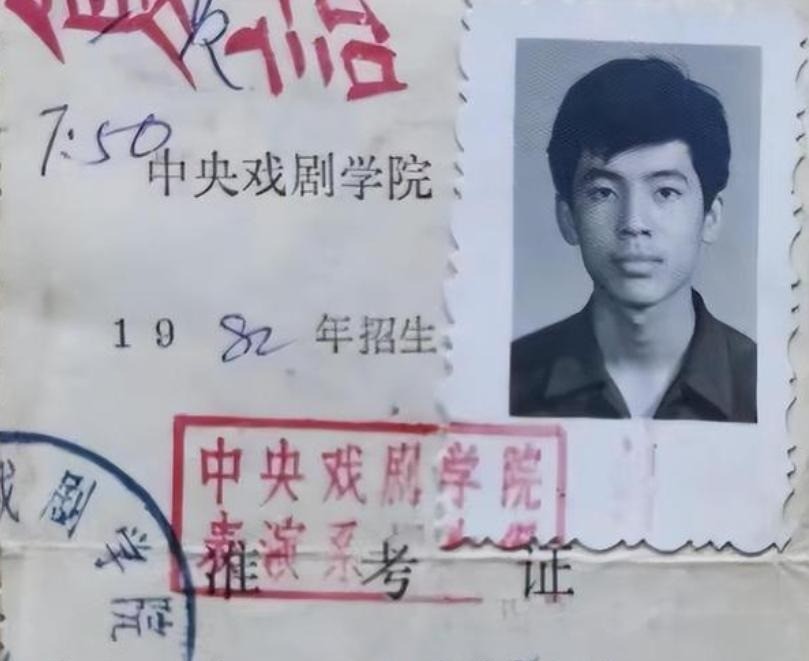 7:50
中央戏剧学院
1982年招生
中央戏剧学院
表演系
准考证
戏剧学院